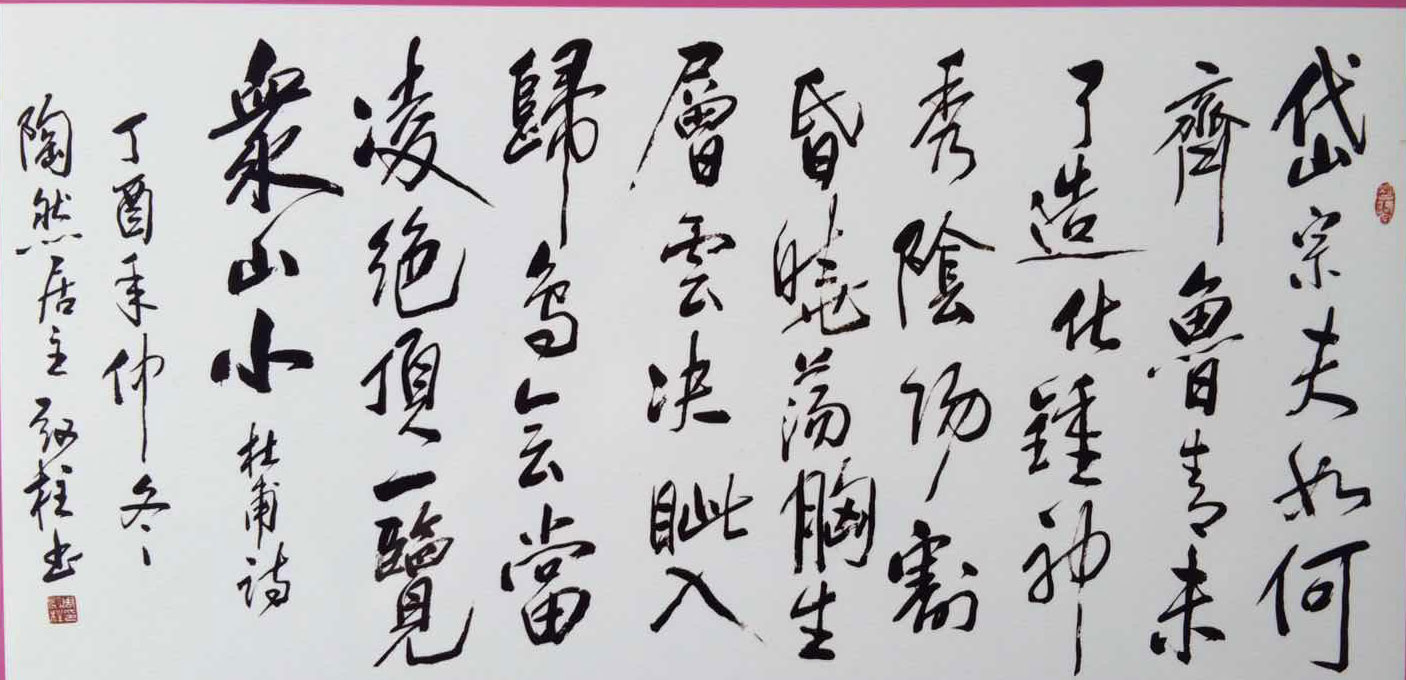 岱宗夫如何
齊魯青未
了造化鍾神
秀陰陽割
昏曉蕩胸生
層雲決眦入
歸鳥會當
凌絕頂一覽
衆山小杜甫詩
丁酉年仲冬
陶然居主 柱书